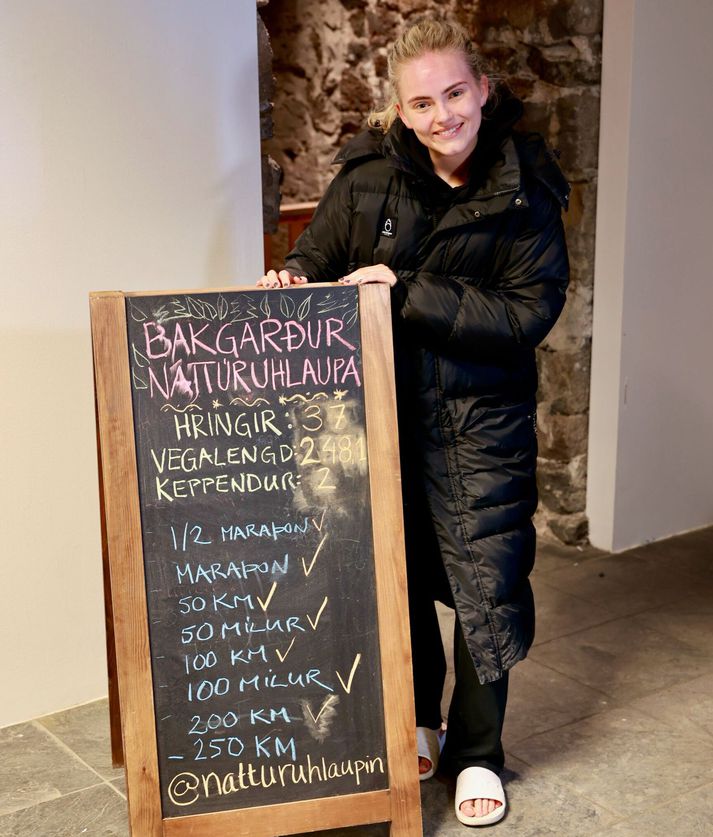 BAKGARÐUR
NÁTTÚRUHLAUPA
HRINGIR: 37
VEGALENGD: 248,1
KEPPENDUR: 2
1/2 MARAÞON ✓
MARAÞON ✓
50 KM ✓
50 MÍLUR ✓
100 KM ✓
100 MÍLUR ✓
200 KM ✓
- 250 KM
@natturuhlaupin